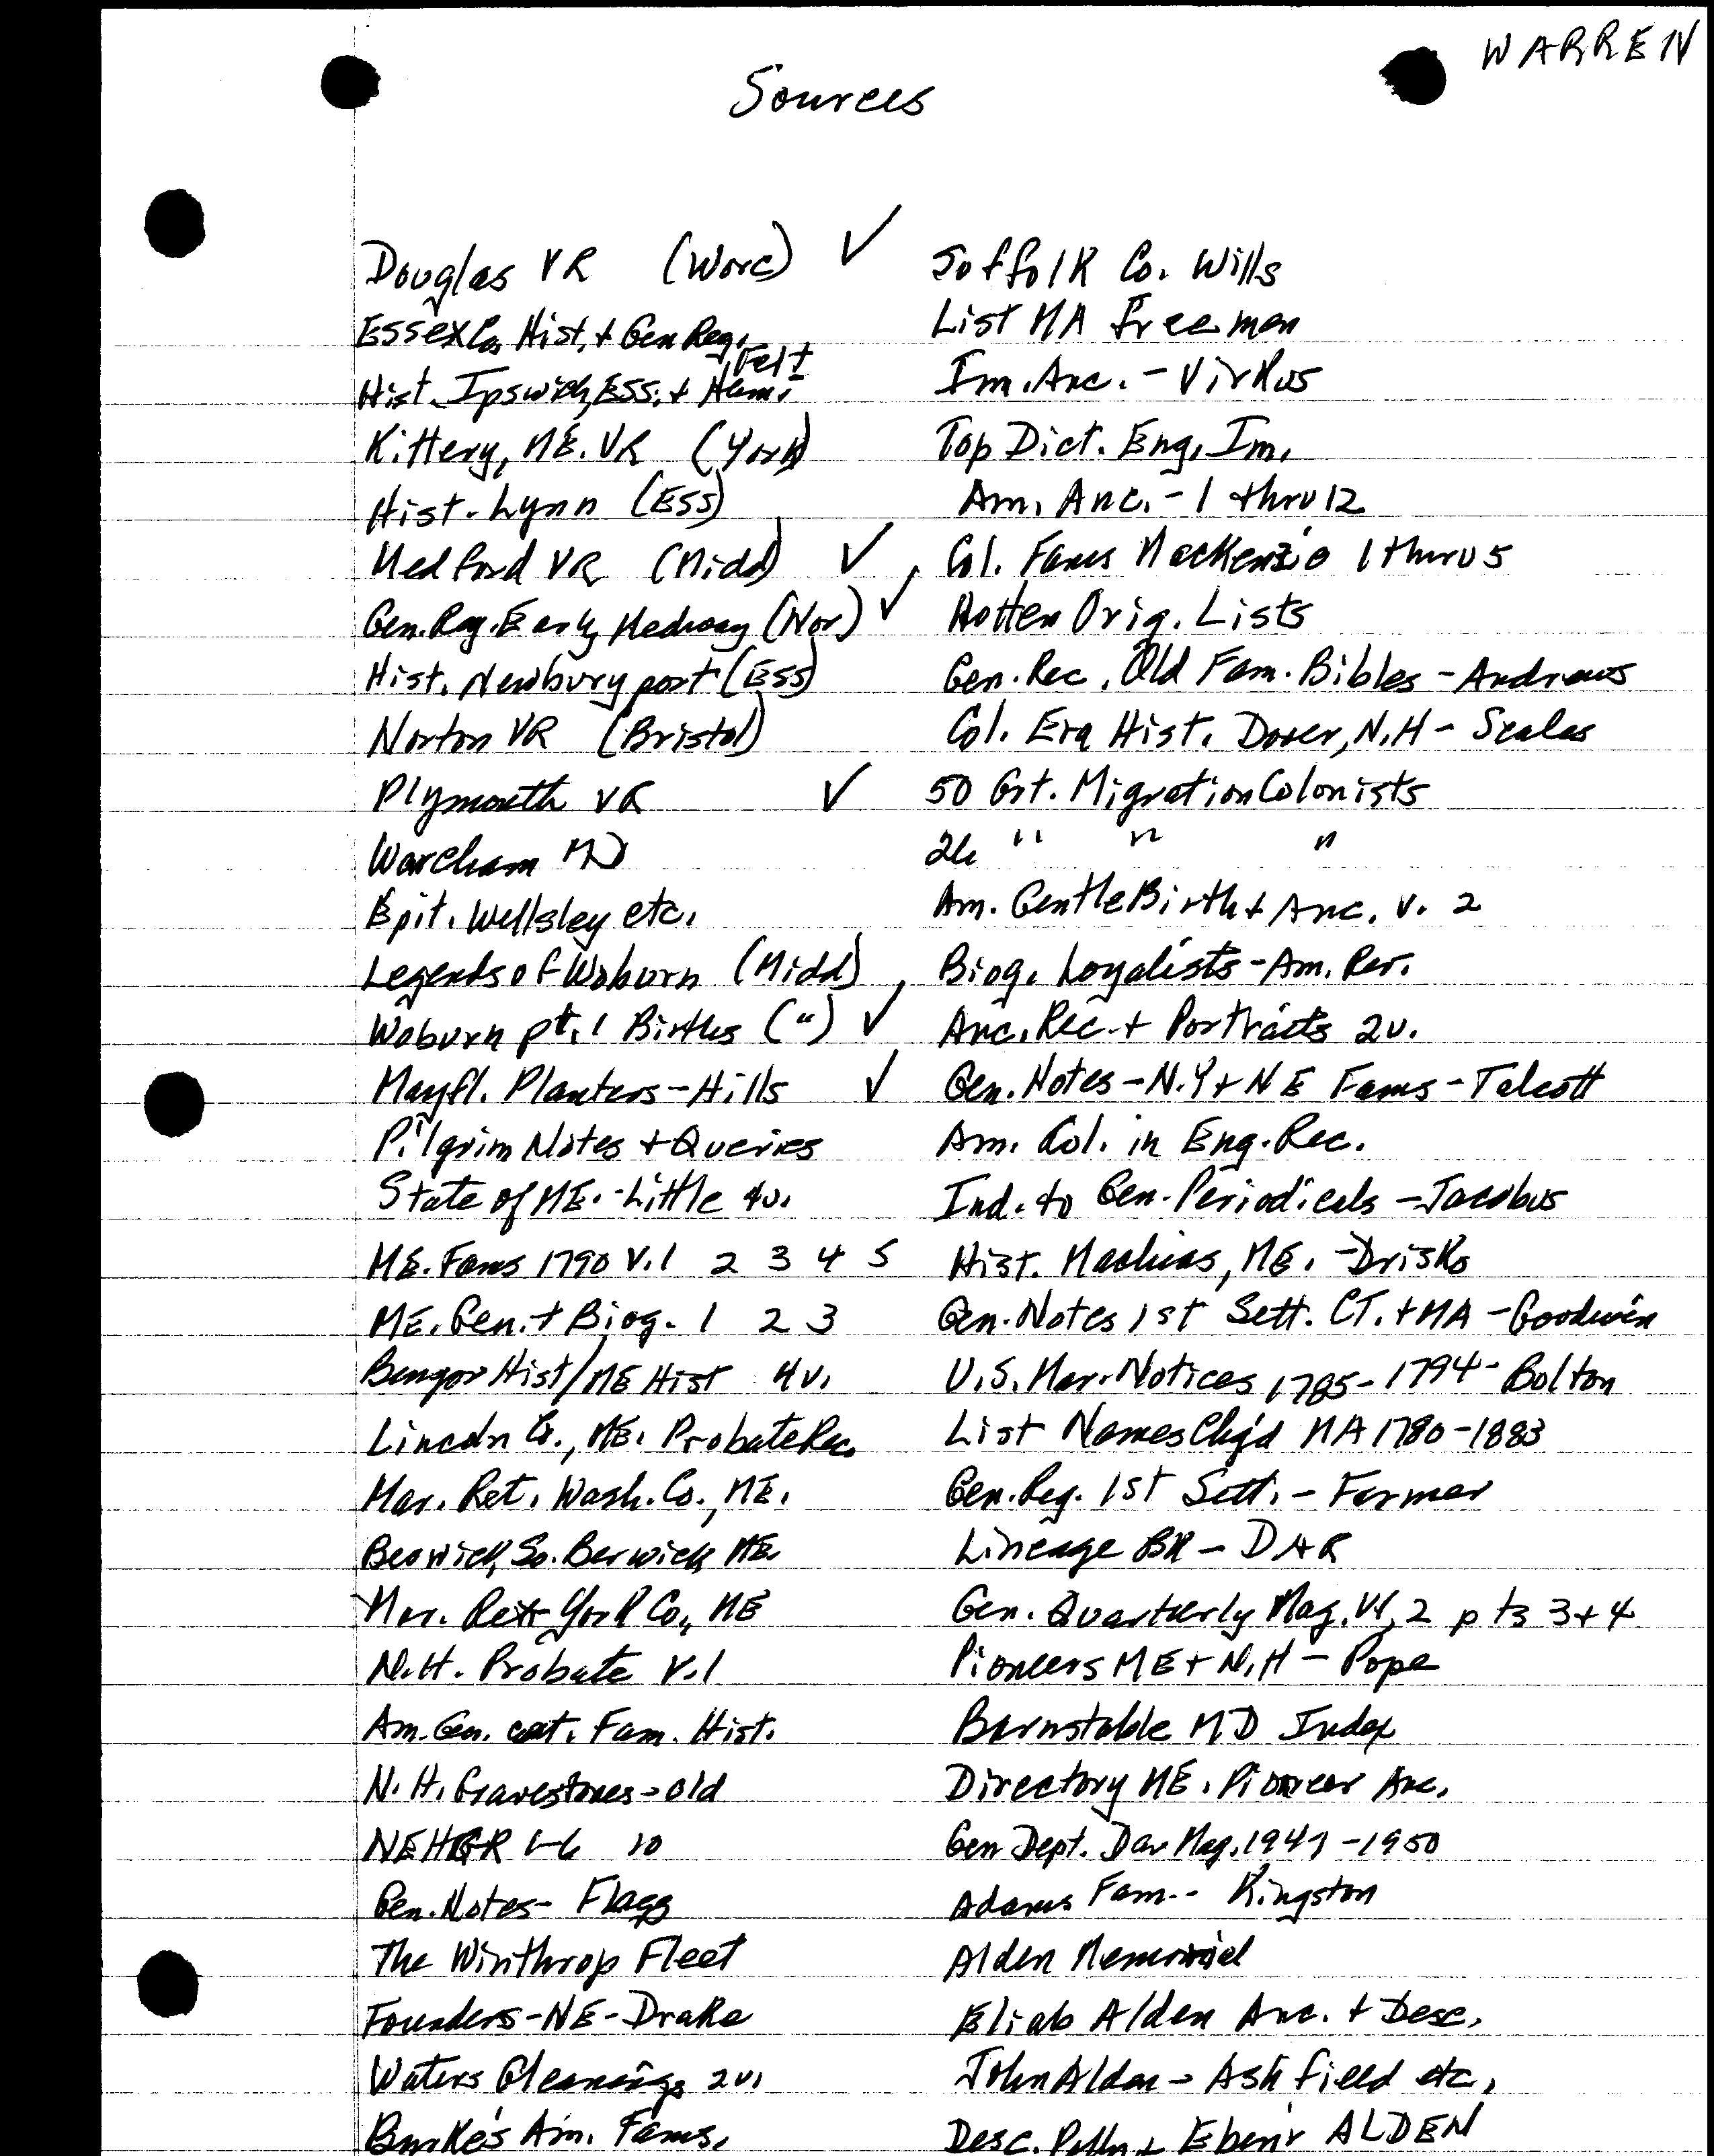 WARREN
Sources
Douglas VR (Worc) ✓
Essex Co. Hist. + Gen Reg.
Hist. Ipswich, Ess. + Ham. Felt
Kittery, ME. VR (York)
Hist. Lynn (Ess)
Medford VR (Midd) ✓
Gen. Reg. Early Medway (Nor) ✓
Hist. Newburyport (Ess)
Norton VR (Bristol)
Plymouth VR ✓
Wareham MD
Epit. Wellsley etc.
Legends of Woburn (Midd)
Woburn pt. 1 Births (") ✓
Mayfl. Planters - Hills ✓
Pilgrim Notes + Queries
State of ME. - Little 4v.
ME. Fams 1790 V.1 2 3 4 5
ME. Gen. + Biog. 1 2 3
Bangor Hist/ME Hist 4v.
Lincoln Co., ME. Probate Rec.
Mar. Ret. Wash. Co., ME.
Berwick, So. Berwick, ME.
Mar. Ret York Co., ME
N.H. Probate V.1
Am. Gen. cat. Fam. Hist.
N.H. Gravestones - old
NEHGR 1-6 10
Gen. Notes - Flagg
The Winthrop Fleet
Founders - NE - Drake
Waters Gleanings 2v.
Burke's Am. Fams.
Soffolk Co. Wills
List MA Freemen
Im. Anc. - Virkus
Top Dict. Eng. Im.
Am. Anc. - 1 thru 12
Col. Fams MacKenzie 1 thru 5
Hotten Orig. Lists
Gen. Rec. Old Fam. Bibles - Andrews
Col. Era Hist. Dover, N.H - Scales
50 Grt. Migration Colonists
26 " " "
Am. Gentle Birth + Anc. V. 2
Biog. Loyalists - Am. Rev.
Anc. Rec. + Portraits 2v.
Gen. Notes - N.Y + NE Fams - Talcott
Am. Col. in Eng. Rec.
Ind. to Gen. Periodicals - Jacobus
Hist. Machias, ME. - Drisko
Gen. Notes 1st Sett. CT. + MA - Goodwin
U.S. Mar. Notices 1785-1794 - Bolton
List Names Chg'd MA 1780-1883
Gen. Reg. 1st Sett. - Farmer
Lineage BK - DAR
Gen. Quarterly Mag. V1, 2 pts 3+4
Pioneers ME + N.H - Pope
Barnstable MD Index
Directory ME. Pioneer Anc.
Gen Dept. Dar Mag. 1947-1950
Adams Fam. - Kingston
Alden Memorial
Eliab Alden Anc. + Desc.
John Alden - Ashfield etc.
Desc. Polly + Eben'r ALDEN